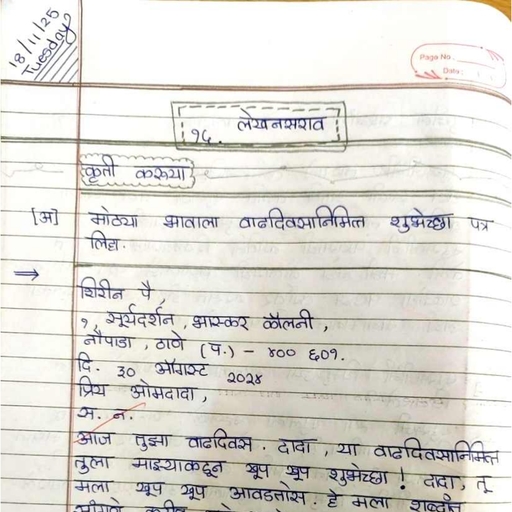 18/11/25
Tuesday
Page No.
Date:
१६. लेखनसराव
कृती करूया
[अ] मोठ्या भावाला वाढदिवसानिमित्त शुभेच्छा पत्र
लिहा.
⇒
शिरीन पै,
१, सूर्यदर्शन, भास्कर कॉलनी,
नौपाडा, ठाणे (प.) - ४०० ६०१.
दि. ३० ऑगस्ट २०२४
प्रिय ओमदादा,
स. न.
आज तुझा वाढदिवस. दादा, या वाढदिवसानिमित्त
तुला माझ्याकडून खूप खूप शुभेच्छा! दादा, तू
मला खूप खूप आवडतोस. हे मला शब्दांत